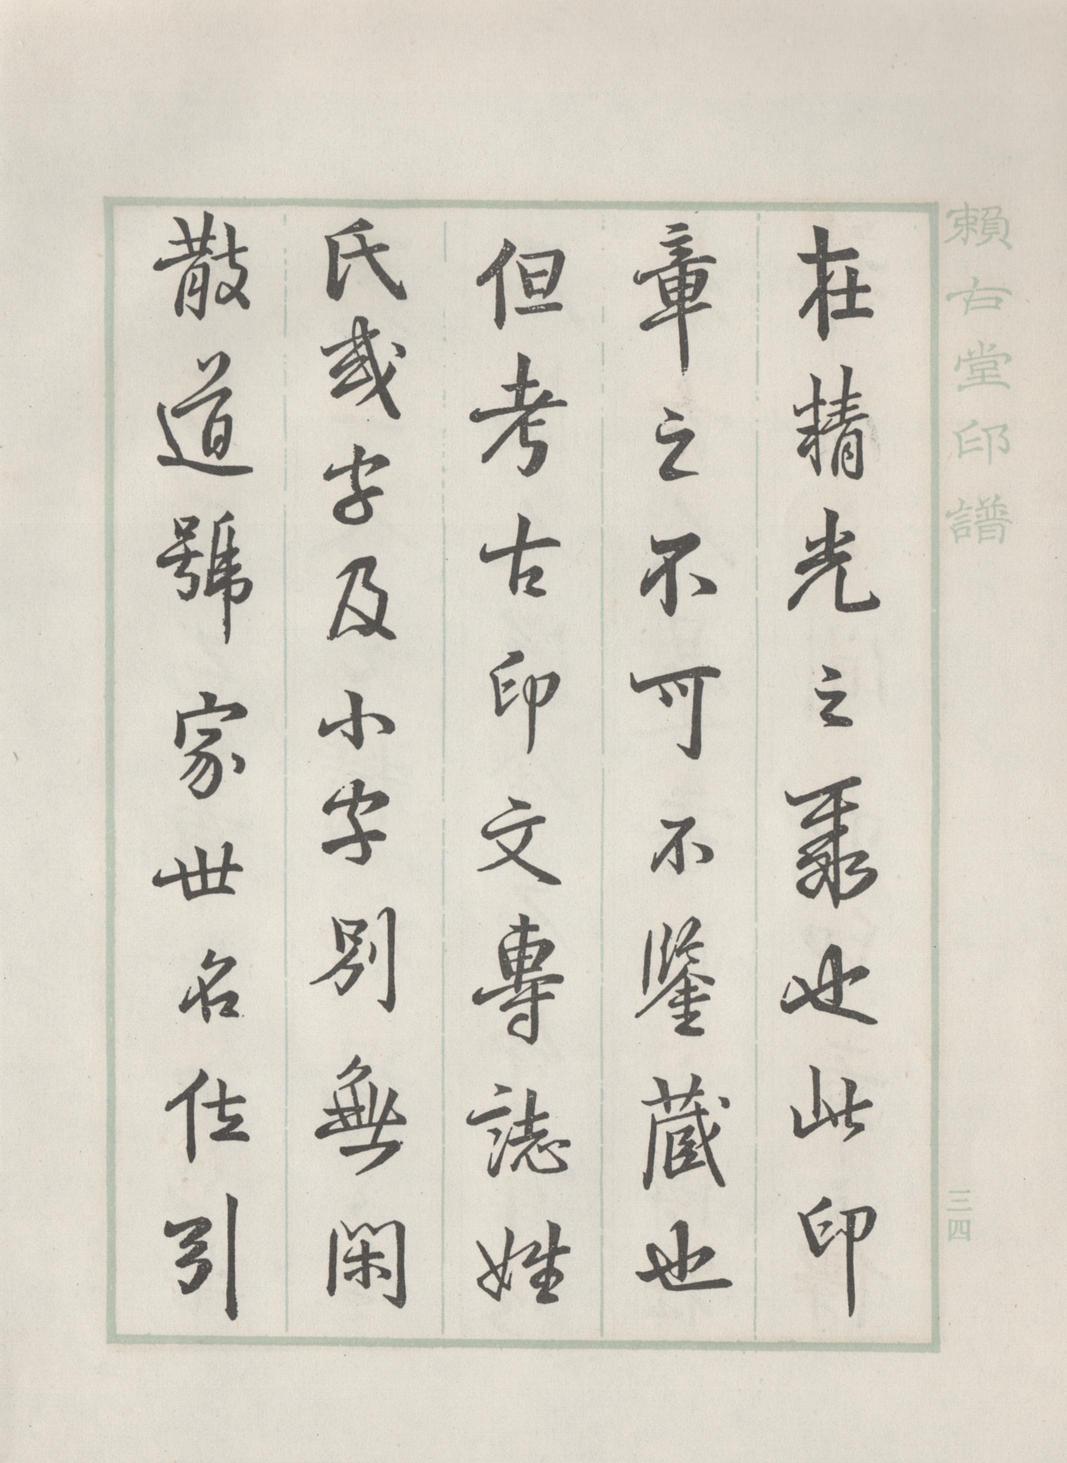 賴古堂印譜
三四
在精光之聚也此印
章之不可不鑒藏也
但考古印文專誌姓
氏或字及小字別無閑
散道號家世名位引